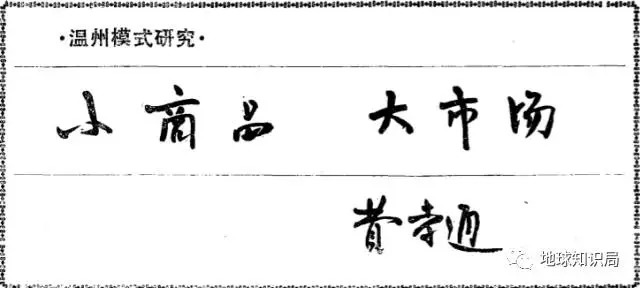 ·温州模式研究·
小商品 大市场
费孝通
地球知识局